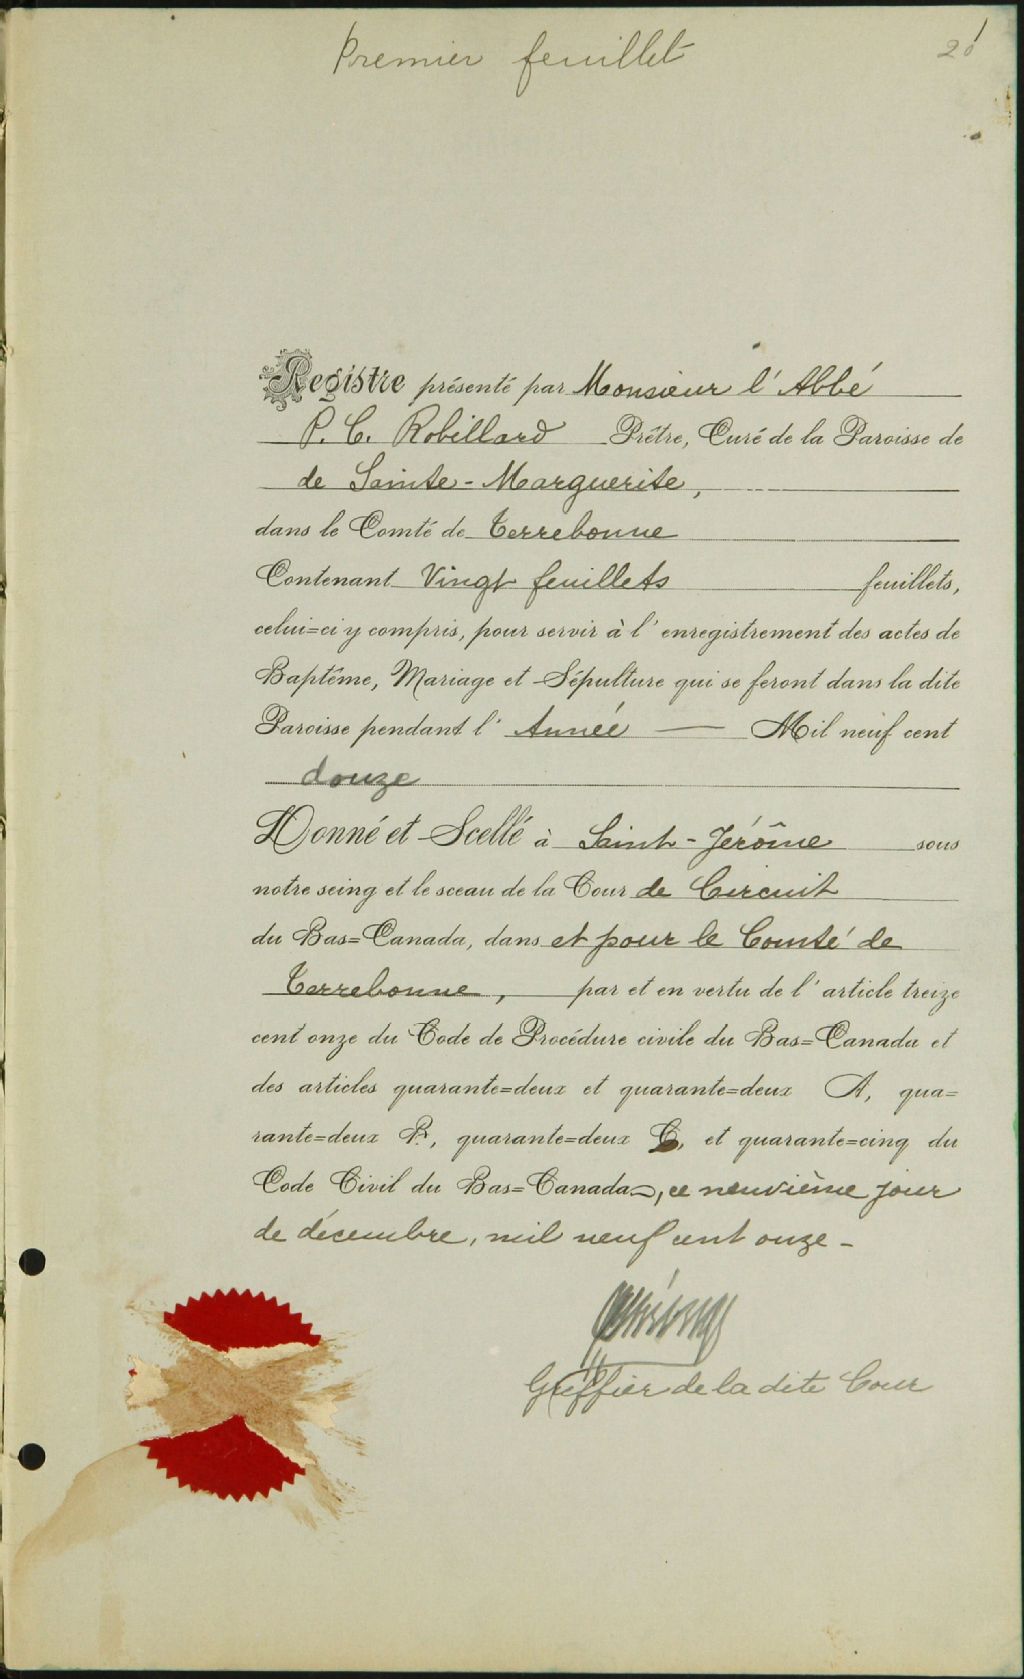 Premier feuillet
Registre présenté par Monsieur l'Abbé
P. C. Robillard Prêtre, Curé de la Paroisse de
de Sainte-Marguerite,
dans le Comté de Terrebonne
Contenant Vingt feuillets feuillets,
celui=ci y compris, pour servir à l'enregistrement des actes de
Baptême, Mariage et Sépulture qui se feront dans la dite
Paroisse pendant l'Année — Mil neuf cent
douze
Donné et Scellé à Saint-Jérôme sous
notre seing et le sceau de la Cour de Circuit
du Bas=Canada, dans et pour le Comté de
Terrebonne, par et en vertu de l'article treize
cent onze du Code de Procédure civile du Bas=Canada et
des articles quarante=deux et quarante=deux A, qua=
rante=deux B, quarante=deux C, et quarante=cinq du
Code Civil du Bas=Canada, ce neuvième jour
de décembre, mil neuf cent onze -
Greffier de la dite Cour